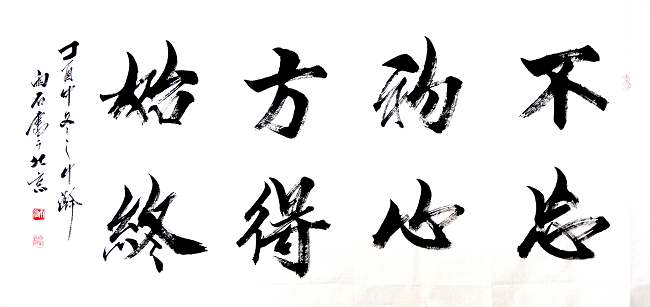 不忘
初心
方得
始終
丁酉中冬之
石書于北京